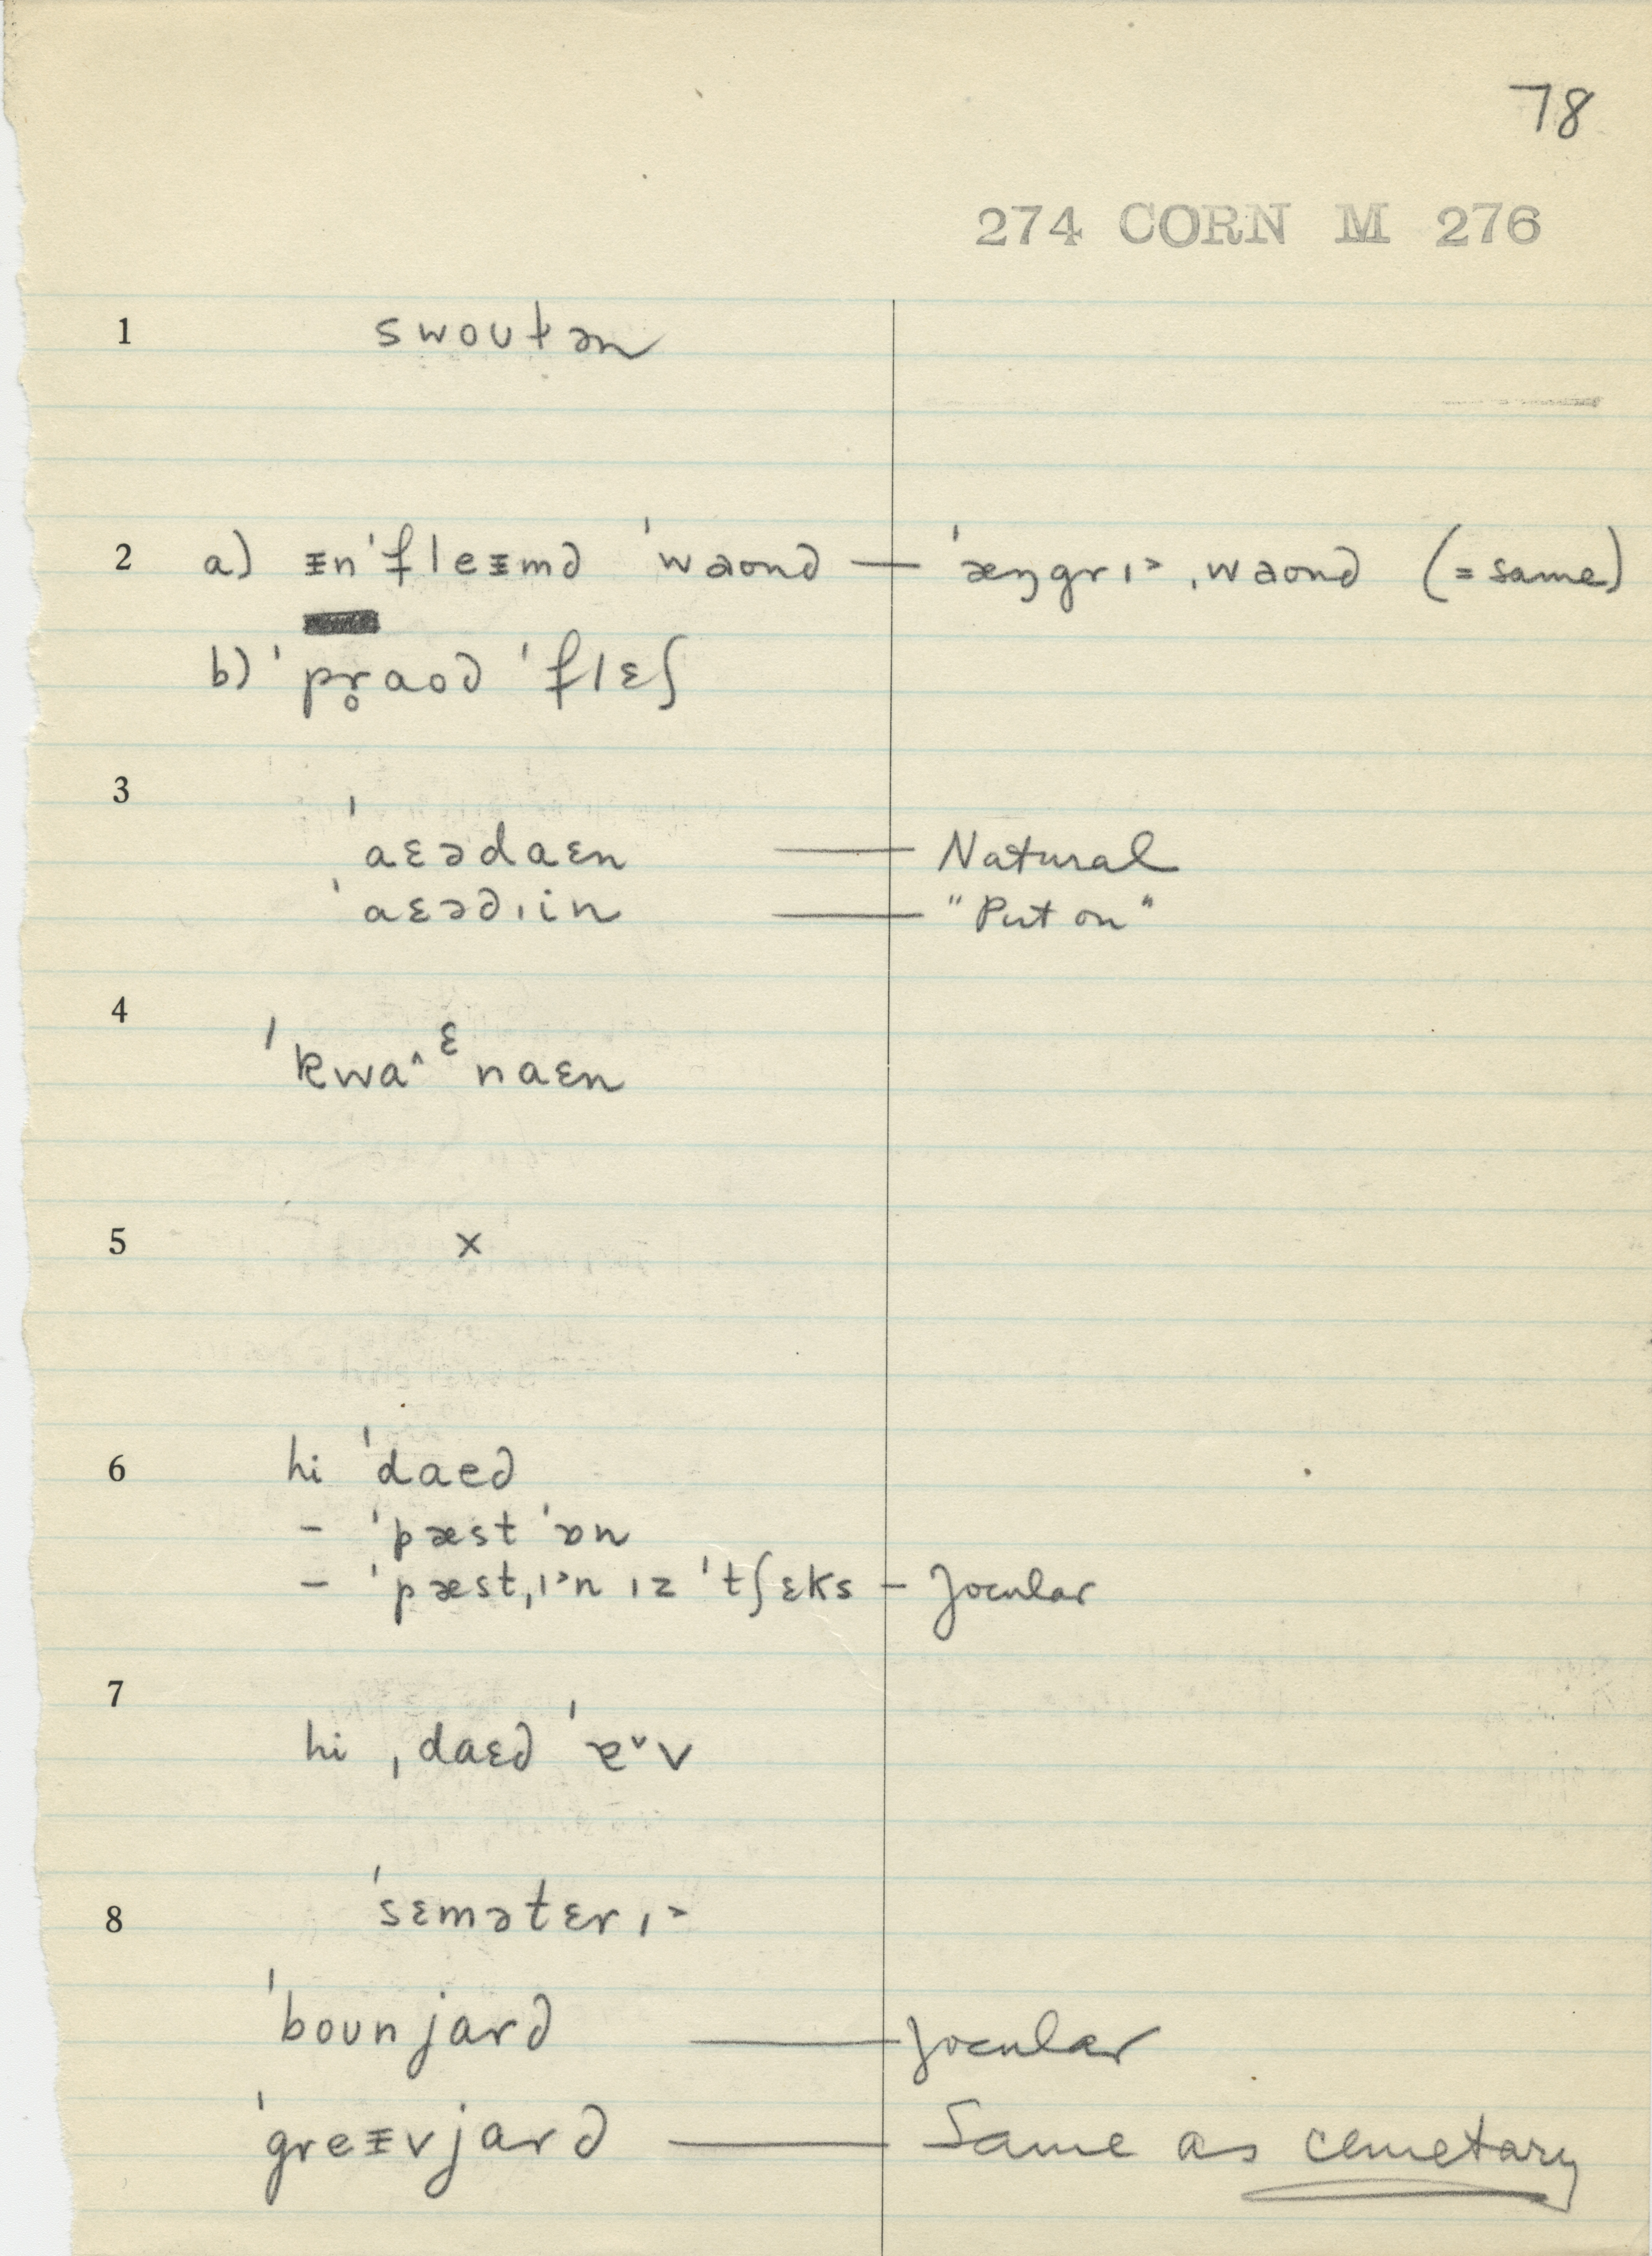 78
274 CORN M 276
1 swoutən
2 a) ᵻn'fleᵻmd 'waond — 'æŋgrɪ˃ ˌwaond (=same)
b) 'pr̥aod 'flɛʃ
3
'aɛədaɛn — Natural
'aɛədˌin — "Put on"
4
'kwa^ᵋnaɛn
5 x
6 hi 'daed
– 'pæst 'ɒn
– 'pæstˌɪ˃n ɪz 'tʃɛks – Jocular
7
hi ˌdaɛd 'ɐ˅v
8 'sɛmətɛrɪ˃
'bounjard — Jocular
'greᵻvjard — Same as cemetary